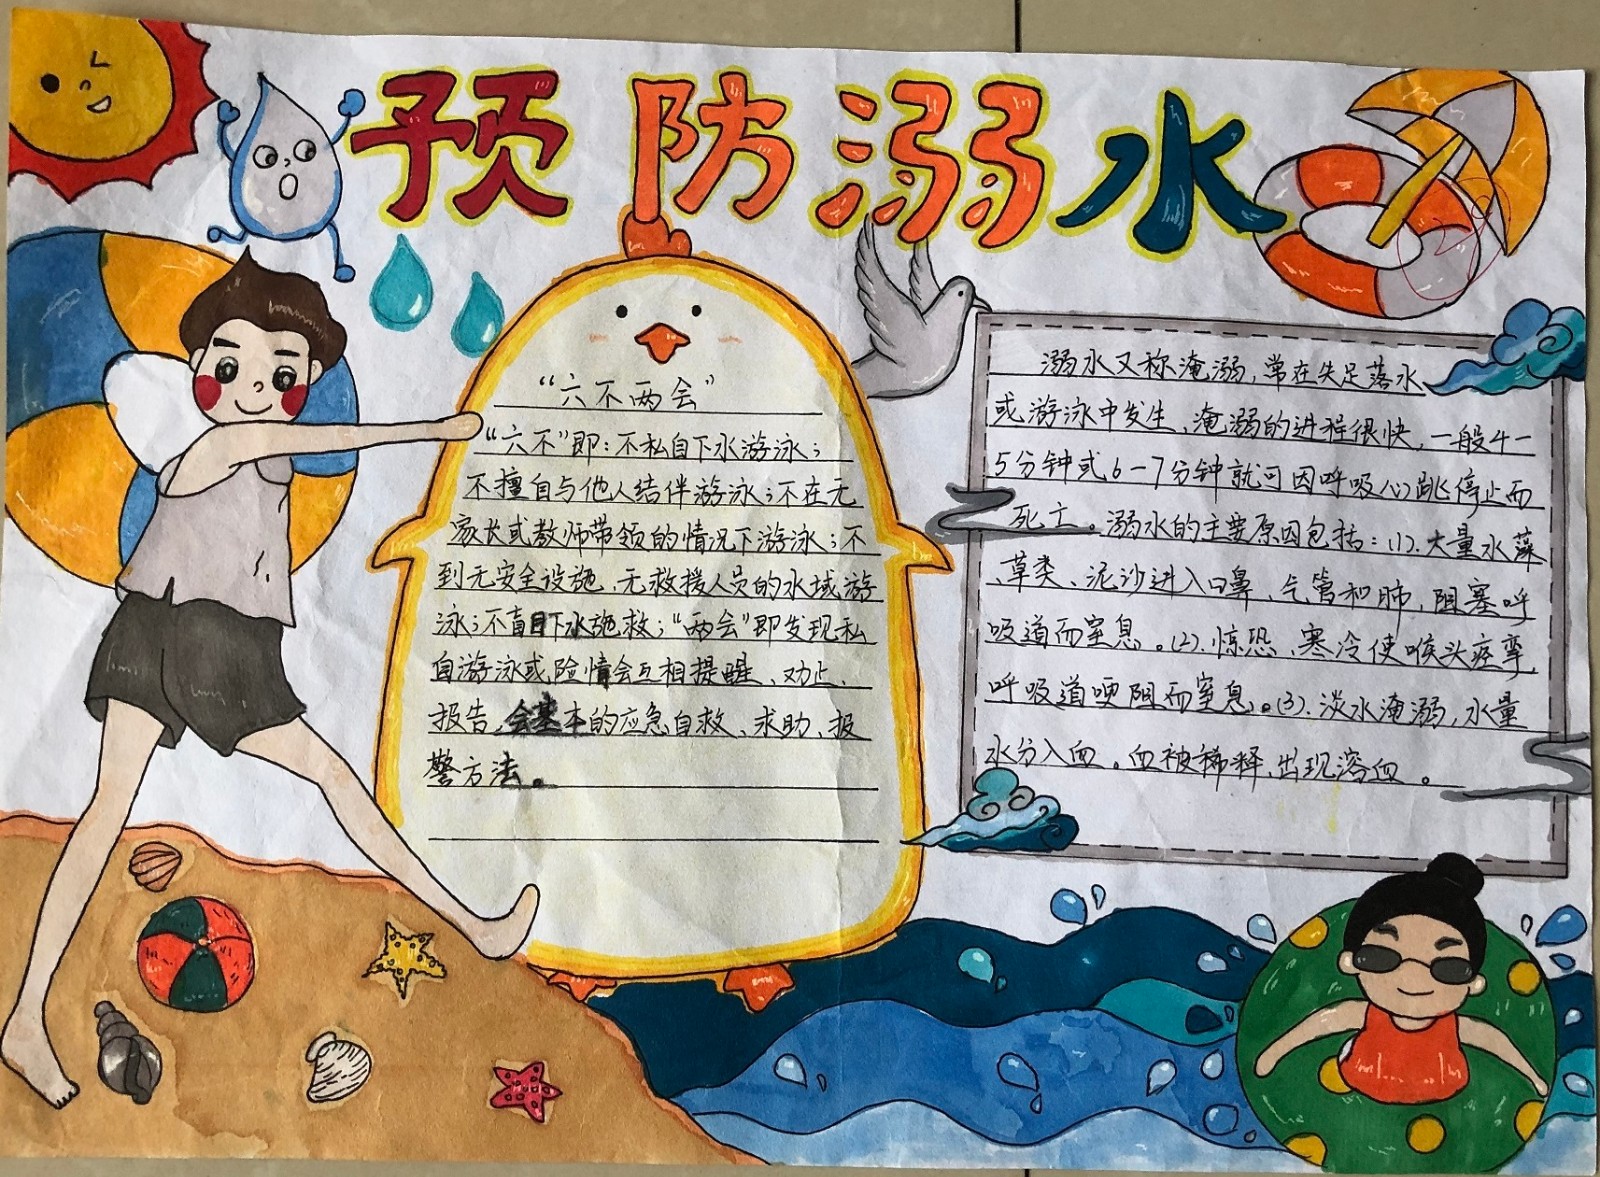 预防溺水
“六不两会”
“六不”即：不私自下水游泳；
不擅自与他人结伴游泳；不在无
家长或教师带领的情况下游泳；不
到无安全设施、无救援人员的水域游
泳；不盲目下水施救；“两会”即发现私
自游泳或险情会互相提醒、劝止、
报告，会基本的应急自救、求助、报
警方法。
溺水又称淹溺，常在失足落水
或游泳中发生，淹溺的进程很快，一般4一
5分钟或6一7分钟就可因呼吸心跳停止而
死亡。溺水的主要原因包括：(1).大量水藻
、草类、泥沙进入口鼻、气管和肺，阻塞呼
吸道而窒息。(2).惊恐、寒冷使喉头痉挛，
呼吸道哽阻而窒息。(3).淡水淹溺，水量
水分入血。血被稀释，出现溶血。